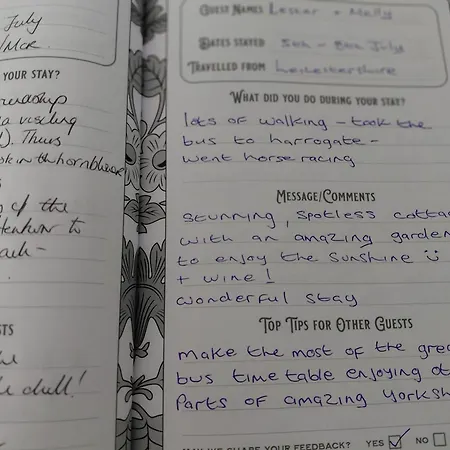 July
/Mcr.
YOUR STAY?
a visiting
). Thurs
of the
to
STS
dull!
GUEST NAMES Lester + Melly
DATES STAYED 5th - 8th July
TRAVELLED FROM Leicestershire
WHAT DID YOU DO DURING YOUR STAY?
lots of walking - took the
bus to harrogate -
went horse racing
MESSAGE/COMMENTS
Stunning, spotless cotta
with an amazing garden
to enjoy the sunshine
+ wine!
wonderful stay
TOP TIPS FOR OTHER GUESTS
make the most of the grea
bus time table enjoying ot
Parts of amazing Yorksh
MAY WE SHARE YOUR FEEDBACK? YES NO